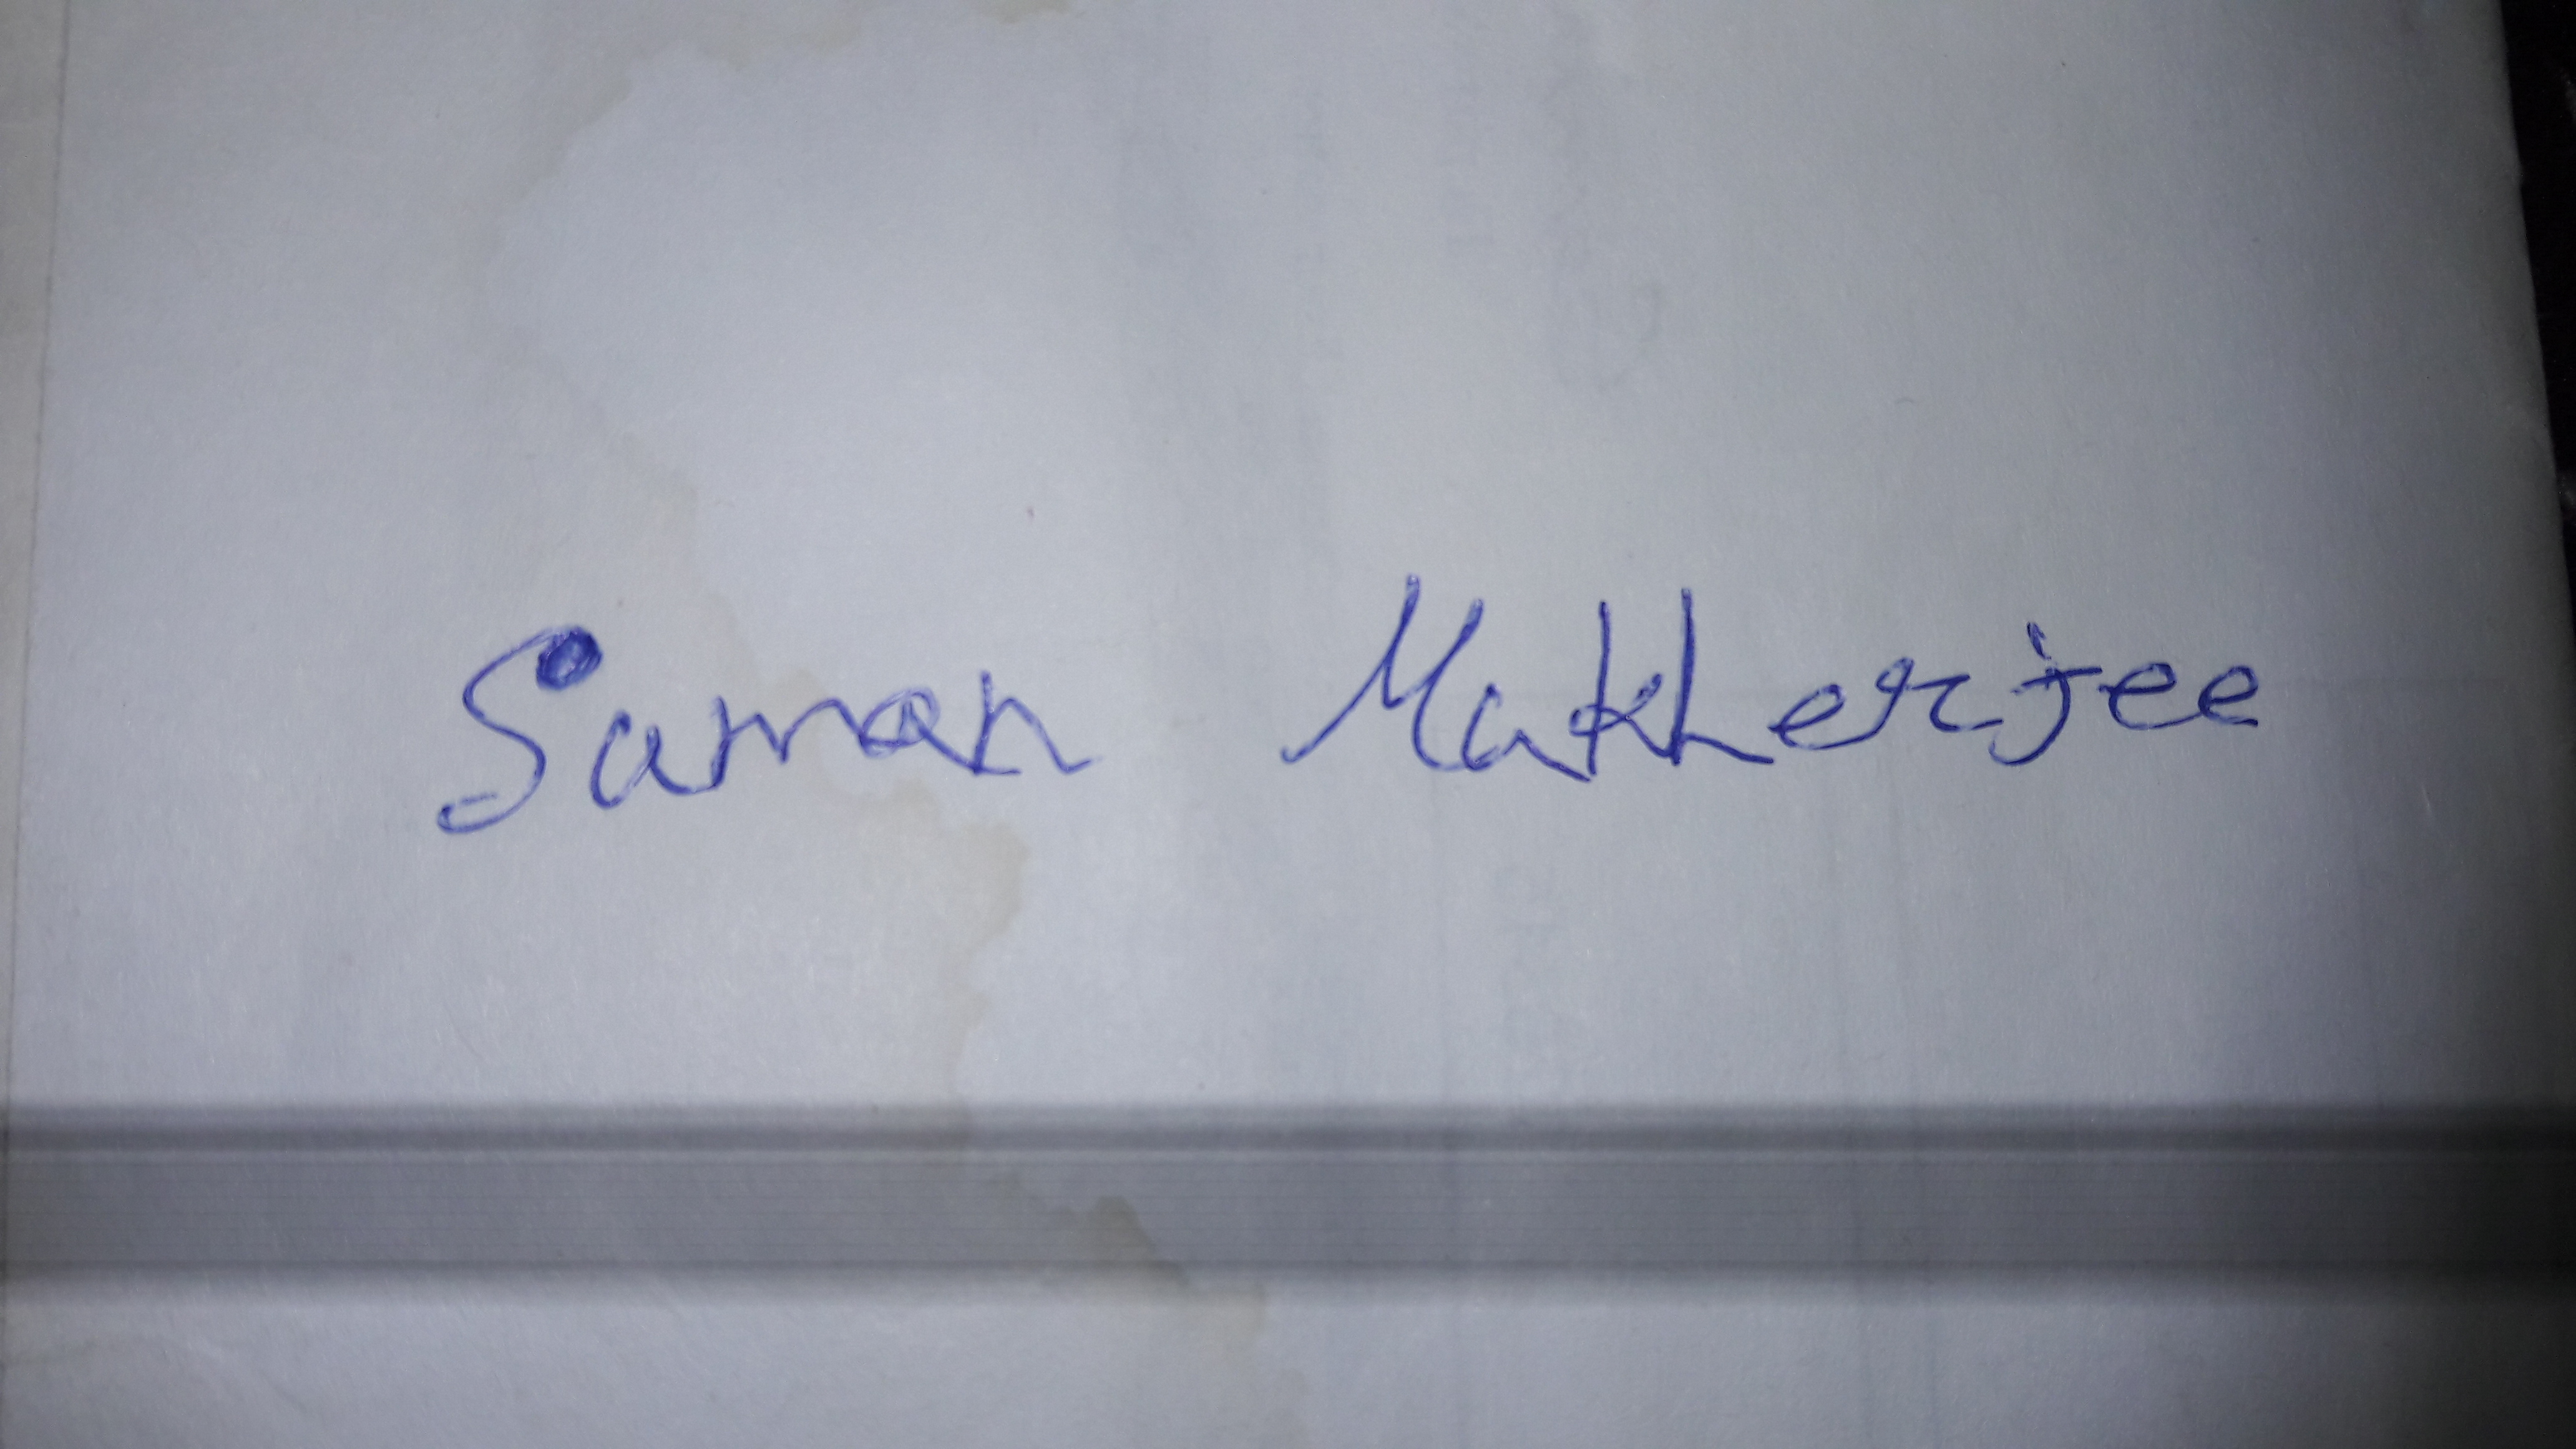 Suman Mukherjee